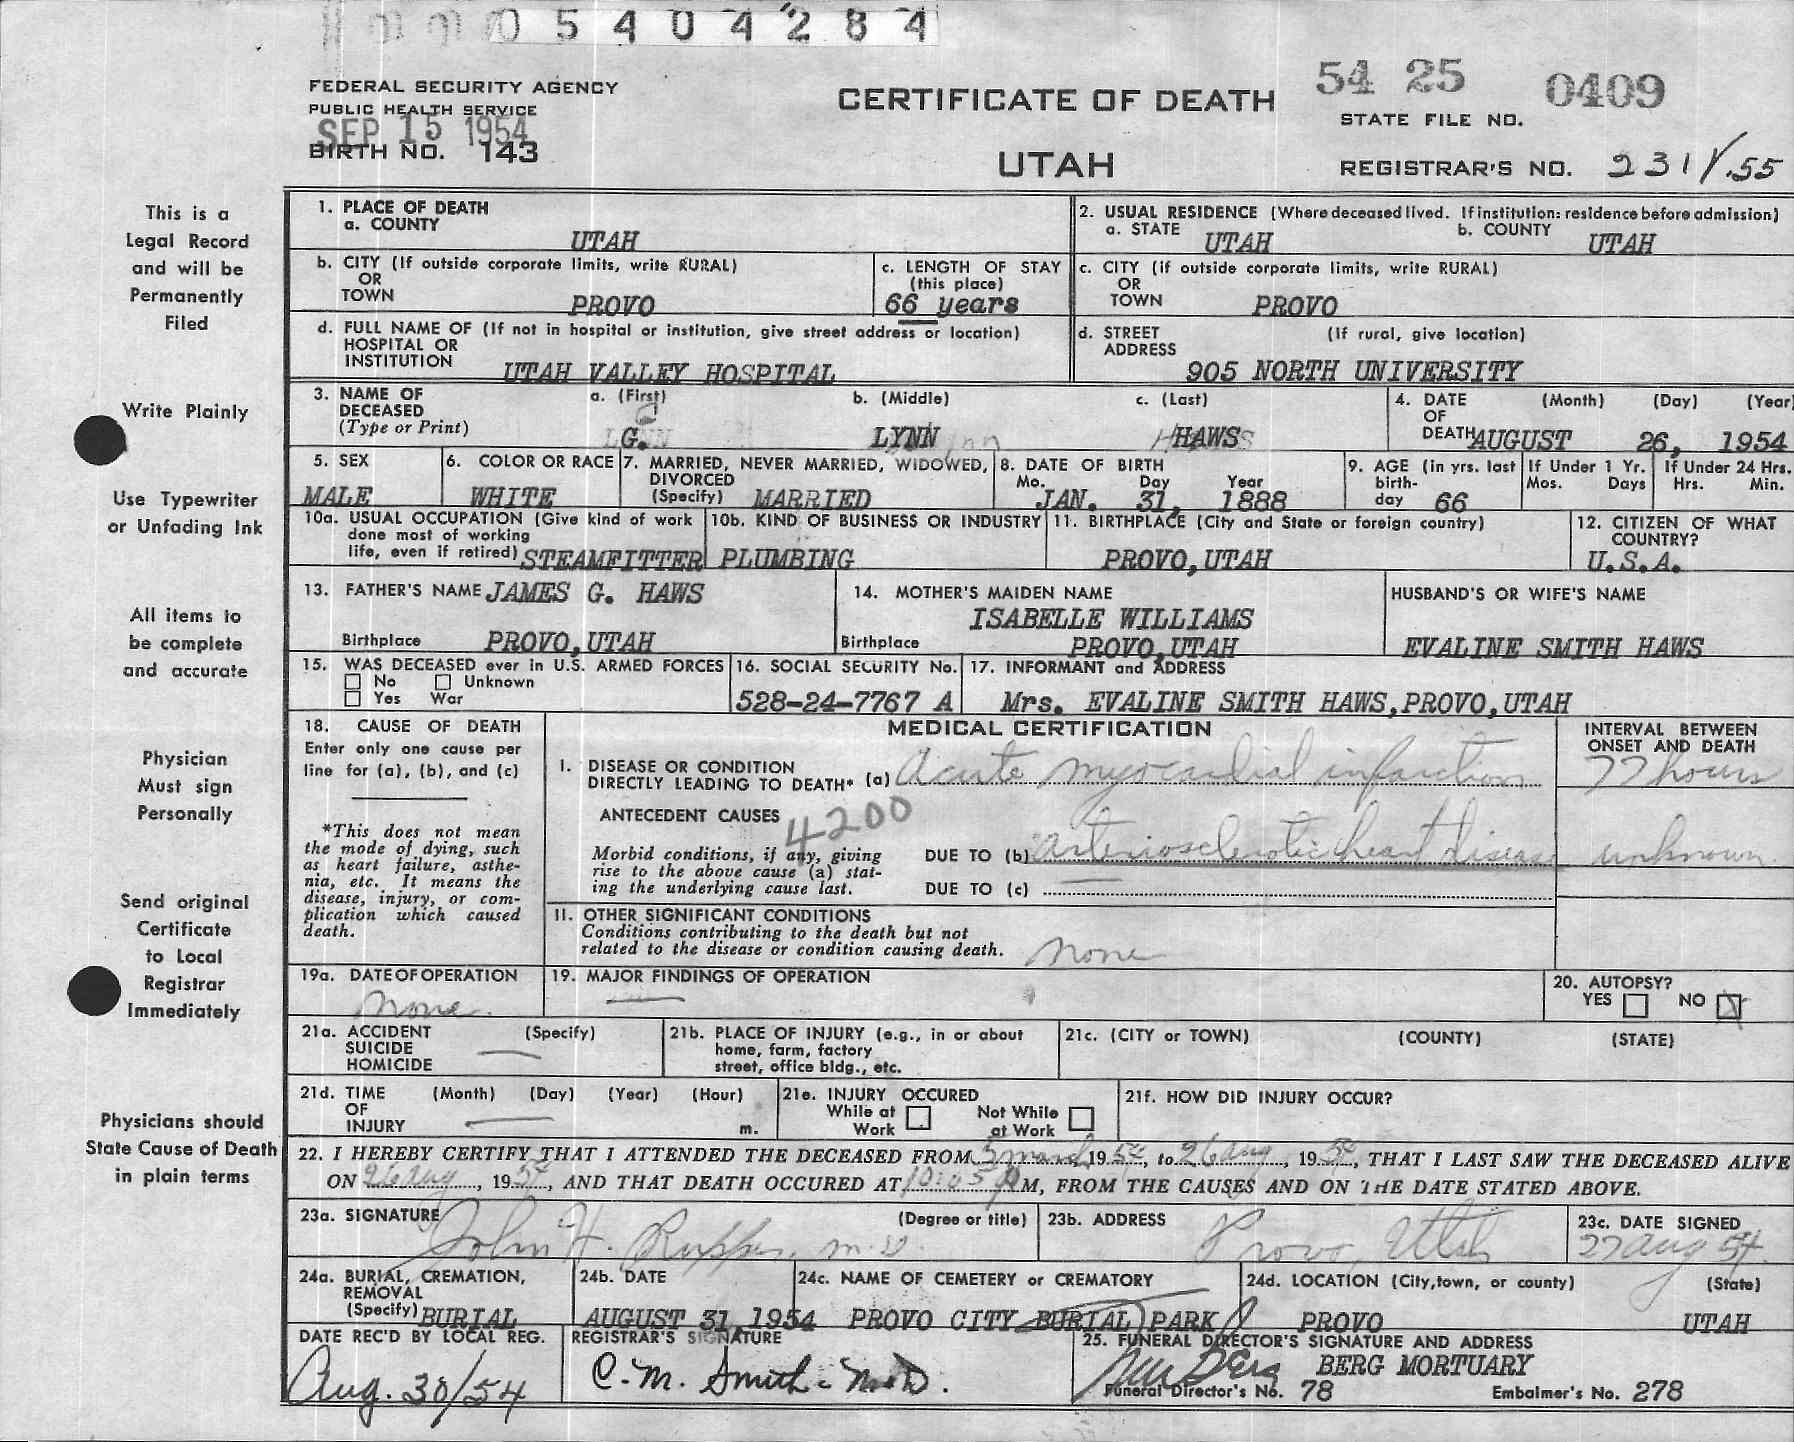 05404284
FEDERAL SECURITY AGENCY
PUBLIC HEALTH SERVICE
SEP 15 1954
BIRTH NO. 143
CERTIFICATE OF DEATH
UTAH
54 25 0409
STATE FILE NO.
REGISTRAR'S NO. 231/.55
This is a
Legal Record
and will be
Permanently
Filed
Write Plainly
Use Typewriter
or Unfading Ink
All items to
be complete
and accurate
Physician
Must sign
Personally
Send original
Certificate
to Local
Registrar
Immediately
Physicians should
State Cause of Death
in plain terms
1. PLACE OF DEATH
a. COUNTY
UTAH
2. USUAL RESIDENCE (Where deceased lived. If institution: residence before admission)
a. STATE UTAH b. COUNTY UTAH
b. CITY (If outside corporate limits, write RURAL)
OR
TOWN PROVO
c. LENGTH OF STAY
(this place)
66 years
c. CITY (if outside corporate limits, write RURAL)
OR
TOWN PROVO
d. FULL NAME OF (If not in hospital or institution, give street address or location)
HOSPITAL OR
INSTITUTION UTAH VALLEY HOSPITAL
d. STREET (If rural, give location)
ADDRESS
905 NORTH UNIVERSITY
3. NAME OF
DECEASED
(Type or Print)
a. (First) b. (Middle) c. (Last)
G. LYNN HAWS
4. DATE (Month) (Day) (Year)
OF
DEATH AUGUST 26, 1954
5. SEX
MALE
6. COLOR OR RACE
WHITE
7. MARRIED, NEVER MARRIED, WIDOWED,
DIVORCED
(Specify) MARRIED
8. DATE OF BIRTH
Mo. Day Year
JAN. 31, 1888
9. AGE (in yrs. last
birth-
day 66
If Under 1 Yr.
Mos. Days
If Under 24 Hrs.
Hrs. Min.
10a. USUAL OCCUPATION (Give kind of work
done most of working
life, even if retired) STEAMFITTER
10b. KIND OF BUSINESS OR INDUSTRY
PLUMBING
11. BIRTHPLACE (City and State or foreign country)
PROVO, UTAH
12. CITIZEN OF WHAT
COUNTRY?
U.S.A.
13. FATHER'S NAME JAMES G. HAWS
Birthplace PROVO, UTAH
14. MOTHER'S MAIDEN NAME
ISABELLE WILLIAMS
Birthplace PROVO, UTAH
HUSBAND'S OR WIFE'S NAME
EVALINE SMITH HAWS
15. WAS DECEASED ever in U.S. ARMED FORCES
No Unknown
Yes War
16. SOCIAL SECURITY No.
528-24-7767 A
17. INFORMANT and ADDRESS
Mrs. EVALINE SMITH HAWS, PROVO, UTAH
18. CAUSE OF DEATH
Enter only one cause per
line for (a), (b), and (c)
*This does not mean
the mode of dying, such
as heart failure, asthe-
nia, etc. It means the
disease, injury, or com-
plication which caused
death.
MEDICAL CERTIFICATION
I. DISEASE OR CONDITION
DIRECTLY LEADING TO DEATH* (a) Acute myocardial infarction
ANTECEDENT CAUSES
4200
Morbid conditions, if any, giving
rise to the above cause (a) stat-
ing the underlying cause last.
DUE TO (b) arteriosclerotic heart disease
DUE TO (c)
INTERVAL BETWEEN
ONSET AND DEATH
77 hours
unknown
II. OTHER SIGNIFICANT CONDITIONS
Conditions contributing to the death but not
related to the disease or condition causing death. none
19a. DATE OF OPERATION
none.
19. MAJOR FINDINGS OF OPERATION
20. AUTOPSY?
YES NO X
21a. ACCIDENT (Specify)
SUICIDE
HOMICIDE
21b. PLACE OF INJURY (e.g., in or about
home, farm, factory
street, office bldg., etc.
21c. (CITY or TOWN) (COUNTY) (STATE)
21d. TIME (Month) (Day) (Year) (Hour)
OF
INJURY m.
21e. INJURY OCCURED
While at Work Not While at Work
21f. HOW DID INJURY OCCUR?
22. I HEREBY CERTIFY THAT I ATTENDED THE DECEASED FROM 5 march, 1954, to 26 aug, 1954, THAT I LAST SAW THE DECEASED ALIVE
ON 26 aug, 1954, AND THAT DEATH OCCURED AT 10:05 PM, FROM THE CAUSES AND ON THE DATE STATED ABOVE.
23a. SIGNATURE (Degree or title)
John H. Rupper, m.D.
23b. ADDRESS
Provo, Utah
23c. DATE SIGNED
27 aug 54.
24a. BURIAL, CREMATION,
REMOVAL
(Specify) BURIAL
24b. DATE
AUGUST 31, 1954
24c. NAME OF CEMETERY or CREMATORY
PROVO CITY BURIAL PARK
24d. LOCATION (City, town, or county) (State)
PROVO UTAH
DATE REC'D BY LOCAL REG.
Aug. 30/54
REGISTRAR'S SIGNATURE
C. M. Smith - M.D.
25. FUNERAL DIRECTOR'S SIGNATURE AND ADDRESS
Berg BERG MORTUARY
Funeral Director's No. 78 Embalmer's No. 278